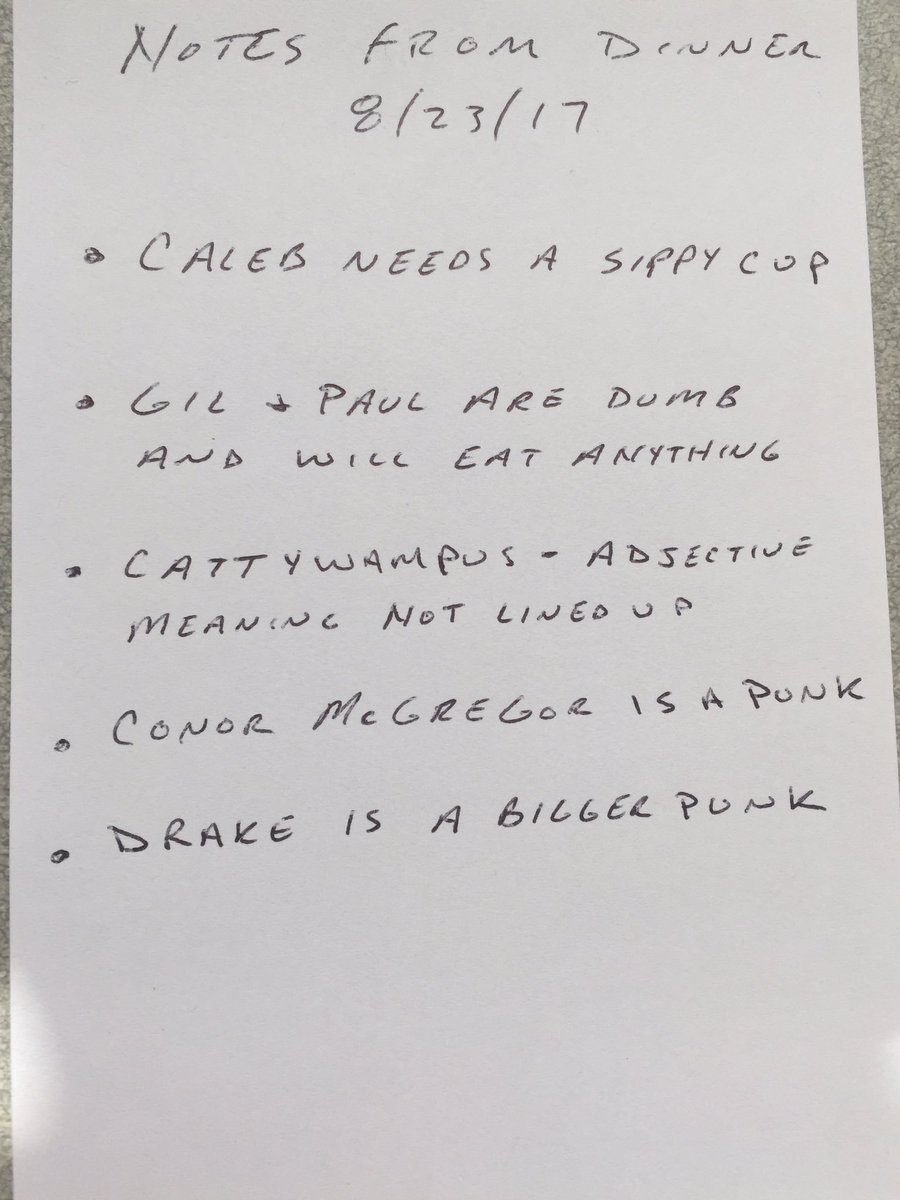 NOTES FROM DINNER
8/23/17
• CALEB NEEDS A SIPPY CUP
• GIL & PAUL ARE DUMB
AND WILL EAT ANYTHING
• CATTYWAMPUS - ADJECTIVE
MEANING NOT LINED UP
• CONOR McGREGOR IS A PUNK
• DRAKE IS A BIGGER PUNK